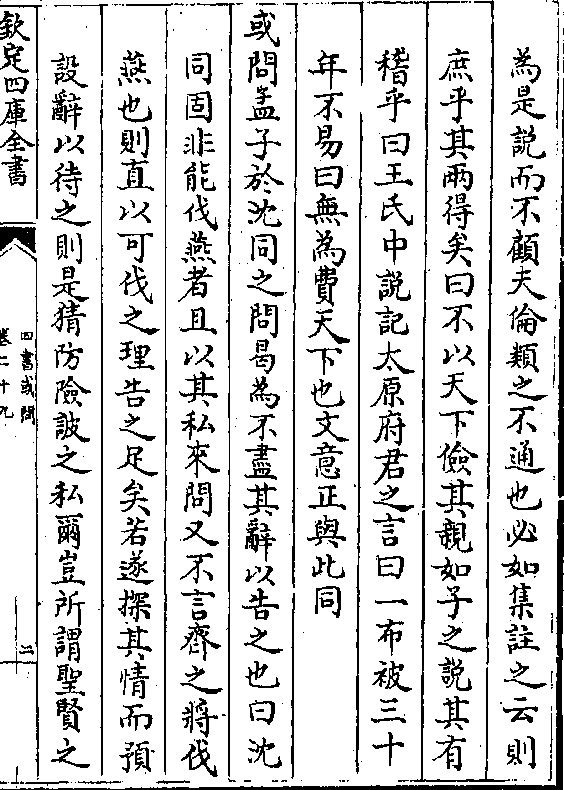 為是説而不顧夫倫類之不通也必如集註之云則
庶乎其兩得矣曰不以天下儉其親如子之説其有
稽乎曰王氏中説記太原府君之言曰一布被三十
年不易曰無為費天下也文意正與此同
或問孟子於沈同之問曷為不盡其辭以告之也曰沈
同固非能伐燕者且以其私來問又不言齊之將伐
燕也則直以可伐之理告之足矣若遂探其情而預
設辭以待之則是猜防險詖之私爾豈所謂聖賢之
欽定四庫全書
四書或問
卷二十九
二